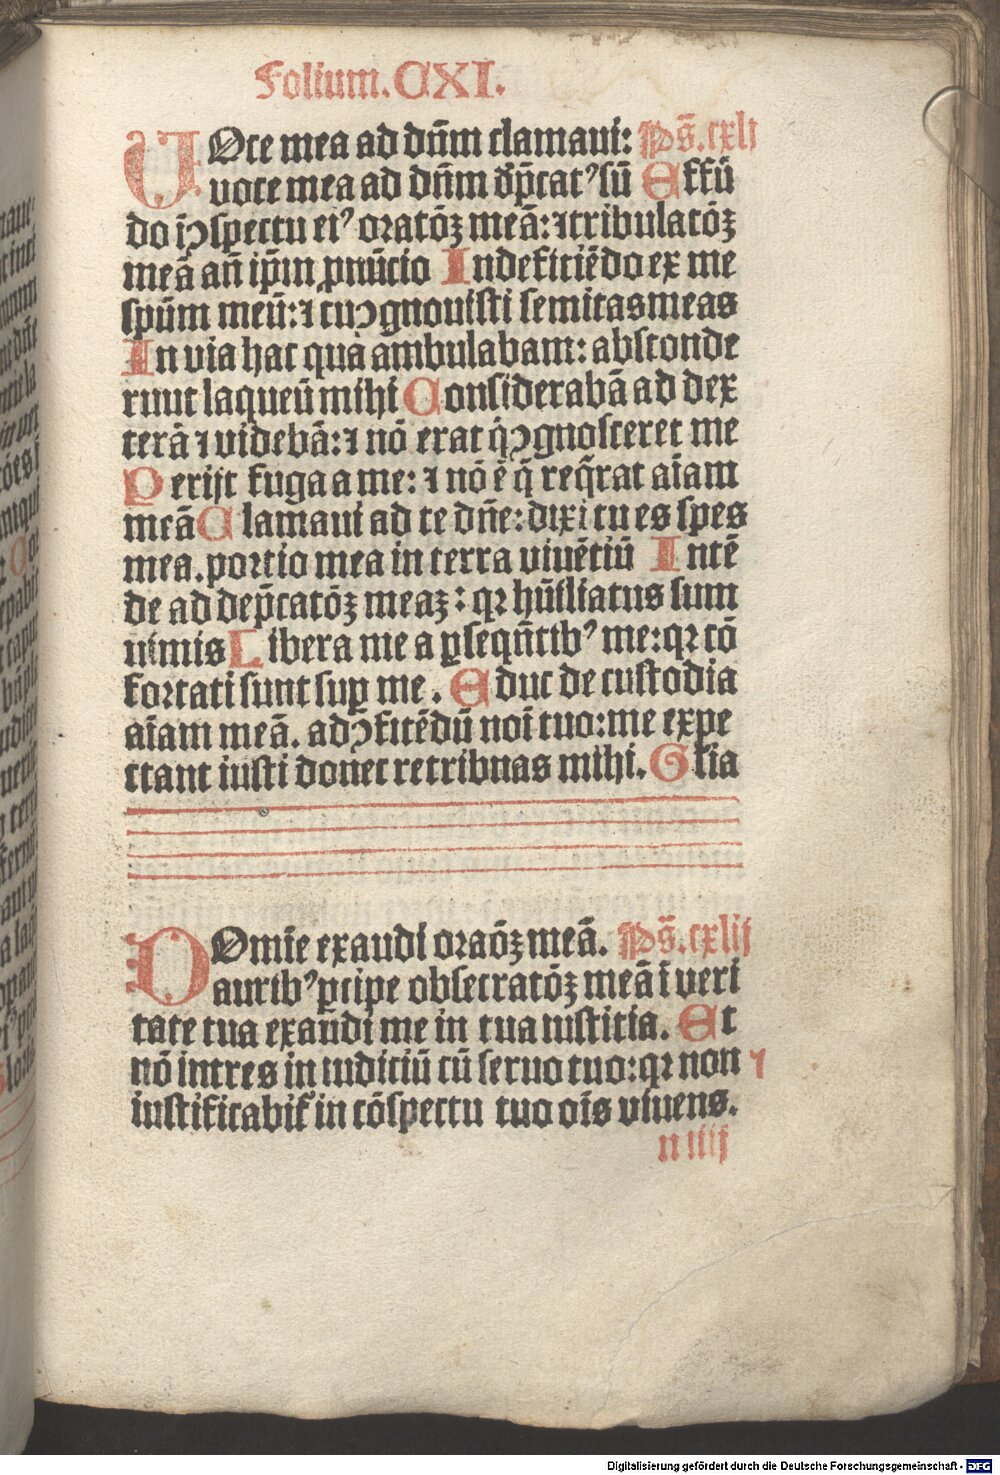 Folium. CXI.
VOce mea ad dn̄m clamaui: Ps̄. cxli
voce mea ad dn̄m dp̄catꝰ sū Effū
do īↄspectu eiꝰ oratōꝫ meā: ⁊ tribulatōꝫ
meā an̄ ip̄m ꝓnūcio In deficiēdo ex me
spūm meū: ⁊ tu ↄgnouisti semitas meas
In via hac qua ambulabam: absconde
runt laqueū mihi Considerabā ad dex
terā ⁊ videbā: ⁊ nō erat q̄ ↄgnosceret me
Perijt fuga a me: ⁊ nō ē q̄ req̄rat aīam
meā Clamaui ad te dn̄e: dixi tu es spes
mea. portio mea in terra viuētiū Intē
de ad dep̄catōꝫ meaꝫ: qꝛ hūiliatus sum
nimis Libera me a ꝑseqn̄tibꝰ me: qꝛ cō
fortati sunt suꝑ me. Educ de custodia
aīam meā. ad ↄfitēdū noī tuo: me expe
ctant iusti donec retribuas mihi. Glia
DOmīe exaudi oraōꝫ meā. Ps̄. cxlij
auribꝰ ꝑcipe obsecratōꝫ meā ī veri
tate tua exaudi me in tua iustitia. Et
nō intres in iudiciū cū seruo tuo: qꝛ non
iustificabit̄ in cōspectu tuo oīs viuens.
n iiij
naue:
Digitalisierung gefördert durch die Deutsche Forschungsgemeinschaft - DFG